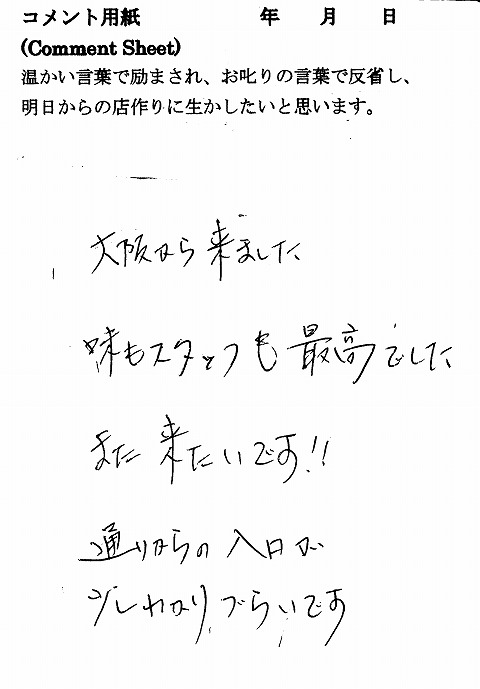 コメント用紙 年 月 日
(Comment Sheet)
温かい言葉で励まされ、お叱りの言葉で反省し、
明日からの店作りに生かしたいと思います。
大阪から来ました
味もスタッフも最高でした
また来たいです!!
通りからの入口が
少しわかりづらいです